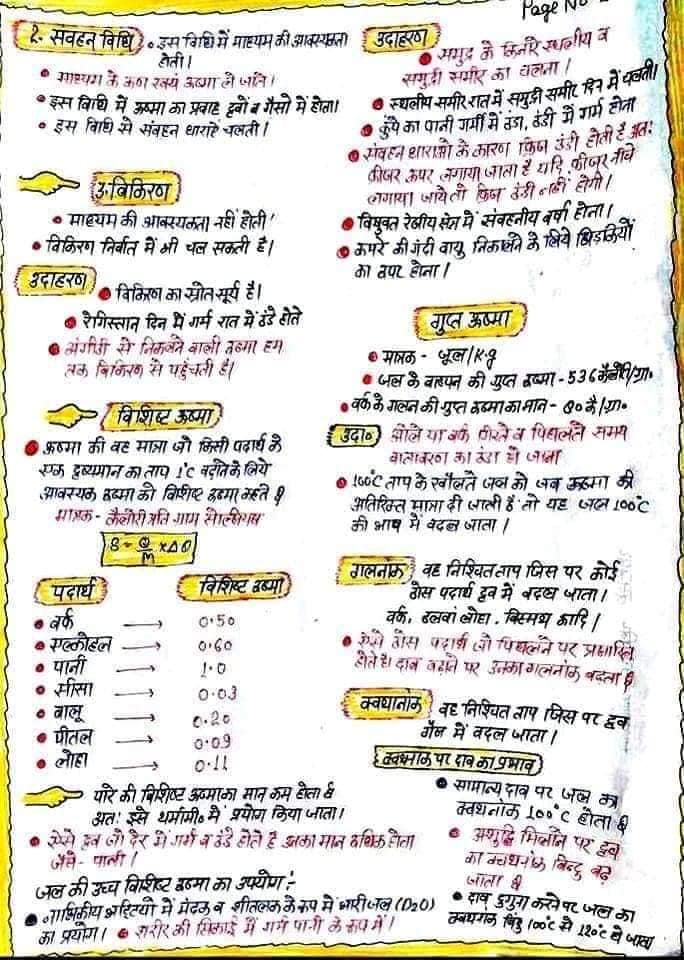 Page No
2. संवहन विधि • इस विधि में माध्यम की आवश्यकता
होती।
• माध्यम के कण स्वयं ऊष्मा ले जाते।
• इस विधि में ऊष्मा का प्रवाह द्रवों व गैसो में होता।
• इस विधि से संवहन धाराएं चलती।
3. विकिरण
• माध्यम की आवश्यकता नहीं होती!
• विकिरण निर्वात में भी चल सकती है।
उदाहरण • विकिरण का स्रोत सूर्य है।
• रेगिस्तान दिन में गर्म रात में ठंडे होते
• अंगीठी से निकलने वाली ऊष्मा हम
तक विकिरण से पहुंचती है।
विशिष्ट ऊष्मा
• ऊष्मा की वह मात्रा जो किसी पदार्थ के
एक द्रव्यमान का ताप 1°C बढ़ाने के लिये
आवश्यक ऊष्मा को विशिष्ट ऊष्मा कहते है
मात्रक - कैलोरी प्रति ग्राम सेल्सियस
S = Q/M × Δθ
पदार्थ विशिष्ट ऊष्मा
• बर्फ → 0.50
• एल्कोहल → 0.60
• पानी → 1.0
• सीसा → 0.03
• बालू → 0.20
• पीतल → 0.09
• लोहा → 0.11
पारे की विशिष्ट ऊष्मा का मान कम होता है
अतः इसे थर्मामी० में प्रयोग किया जाता।
• ऐसे द्रव जो देर में गर्म व ठंडे होते है उनका मान अधिक होता
जैसे - पानी।
जल की उच्च विशिष्ट ऊष्मा का उपयोग :-
• नाभिकीय भट्टियों में मंदक व शीतलक के रूप में भारी जल (D2O)
का प्रयोग। • शरीर की सिकाई में गर्म पानी के रूप में।
उदाहरण
• समुद्र के किनारे स्थलीय व
समुद्री समीर का चलना।
• स्थलीय समीर रात में समुद्री समीर दिन में चलती।
• कुंये का पानी गर्मी में ठंडा, ठंडी में गर्म होना
• संवहन धाराओ के कारण फ्रिज ठंडी होती है अतः
फ्रीजर ऊपर लगाया जाता है यदि फ्रीजर नीचे
लगाया जाये तो फ्रिज ठंडी नहीं होगी।
• विषुवत रेखीय क्षेत्र में संवहनीय वर्षा होना।
• कमरे की गंदी वायु निकालने के लिये खिड़कियों
का ऊपर होना।
गुप्त ऊष्मा
• मात्रक - जूल/Kg
• जल के वाष्पन की गुप्त ऊष्मा - 536 कैलोरी/ग्रा०
• बर्फ के गलन की गुप्त ऊष्मा का मान - 80 कै/ग्रा०
उदा० ओले या बर्फ गिरने व पिघलते समय
वातावरण का ठंडा हो जाना
• 100°C ताप के खौलते जल को जब ऊष्मा की
अतिरिक्त मात्रा दी जाती है तो यह जल 100°C
की भाप में बदल जाता।
गलनांक वह निश्चित ताप जिस पर कोई
ठोस पदार्थ द्रव में बदल जाता।
बर्फ, ढलवां लोहा, बिस्मथ आदि।
• ऐसे ठोस पदार्थ जो पिघलने पर प्रसारित
होते है। दाब बढ़ाने पर उनका गलनांक बढ़ता है
क्वथनांक वह निश्चित ताप जिस पर द्रव
गैस में बदल जाता।
क्वथनांक पर दाब का प्रभाव
• सामान्य दाब पर जल का
क्वथनांक 100°C होता है
• अशुद्धि मिलाने पर द्रव
का क्वथनांक बिन्दु बढ़
जाता है
• दाब दुगुना करने पर जल का
क्वथनांक बिंदु 100°C से 120°C हो जाता